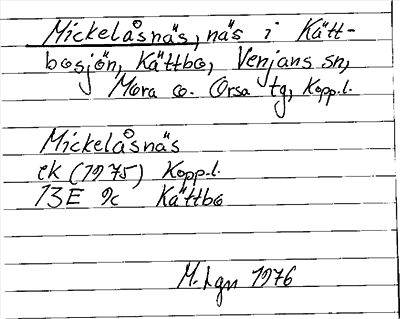 Mickelåsnäs, näs i Kätt-
bosjön, Kättbo, Venjans sn,
Mora o. Orsa tg, Kopp.l.
Mickelåsnäs
ek (1975) Kopp.l.
13E 9c Kättbo
M. Lgn 1976